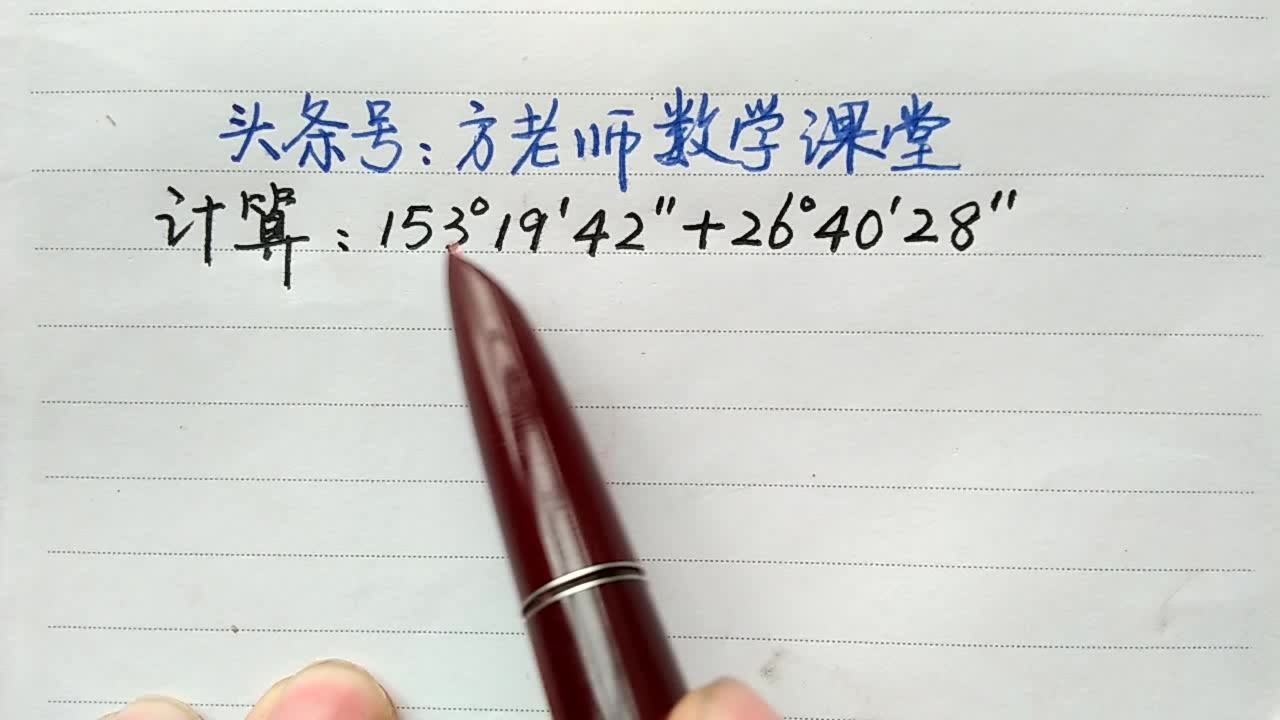 头条号：方老师数学课堂
计算：153°19′42″+26°40′28″